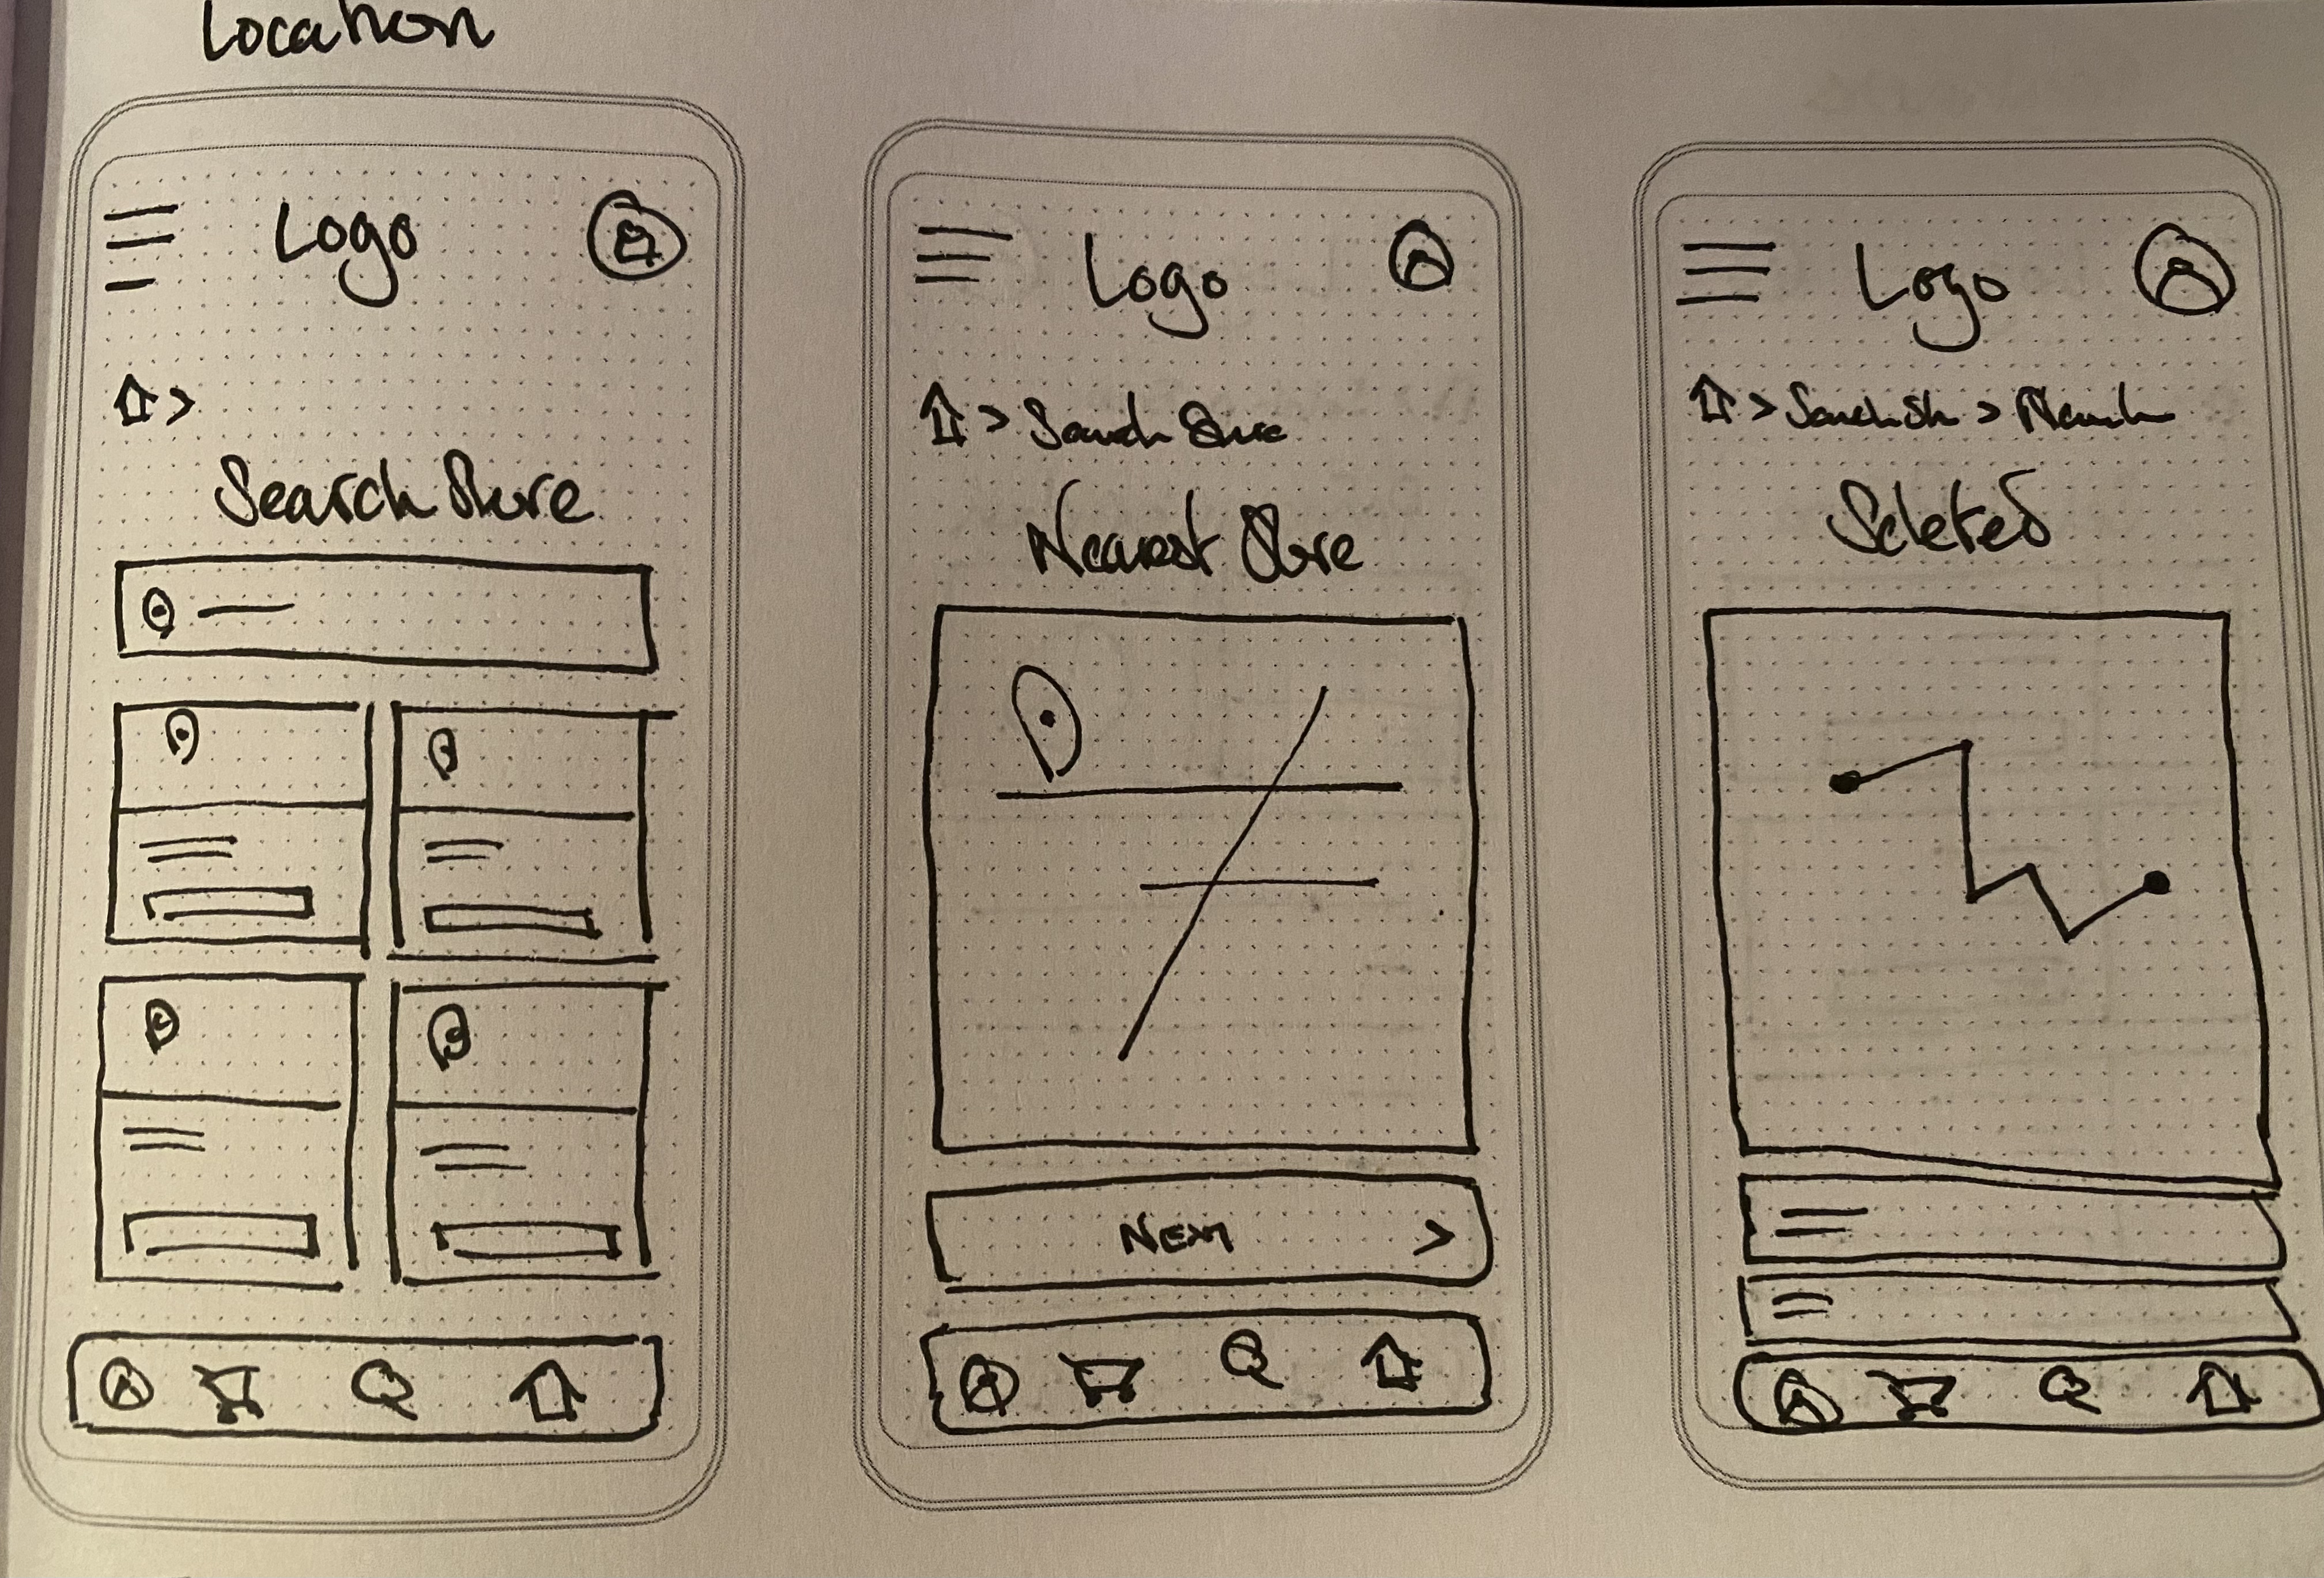 Location
Logo
>
Search Store
Logo
> Search Store
Nearest Store
NEXT >
Logo
> Search St >
Seleted